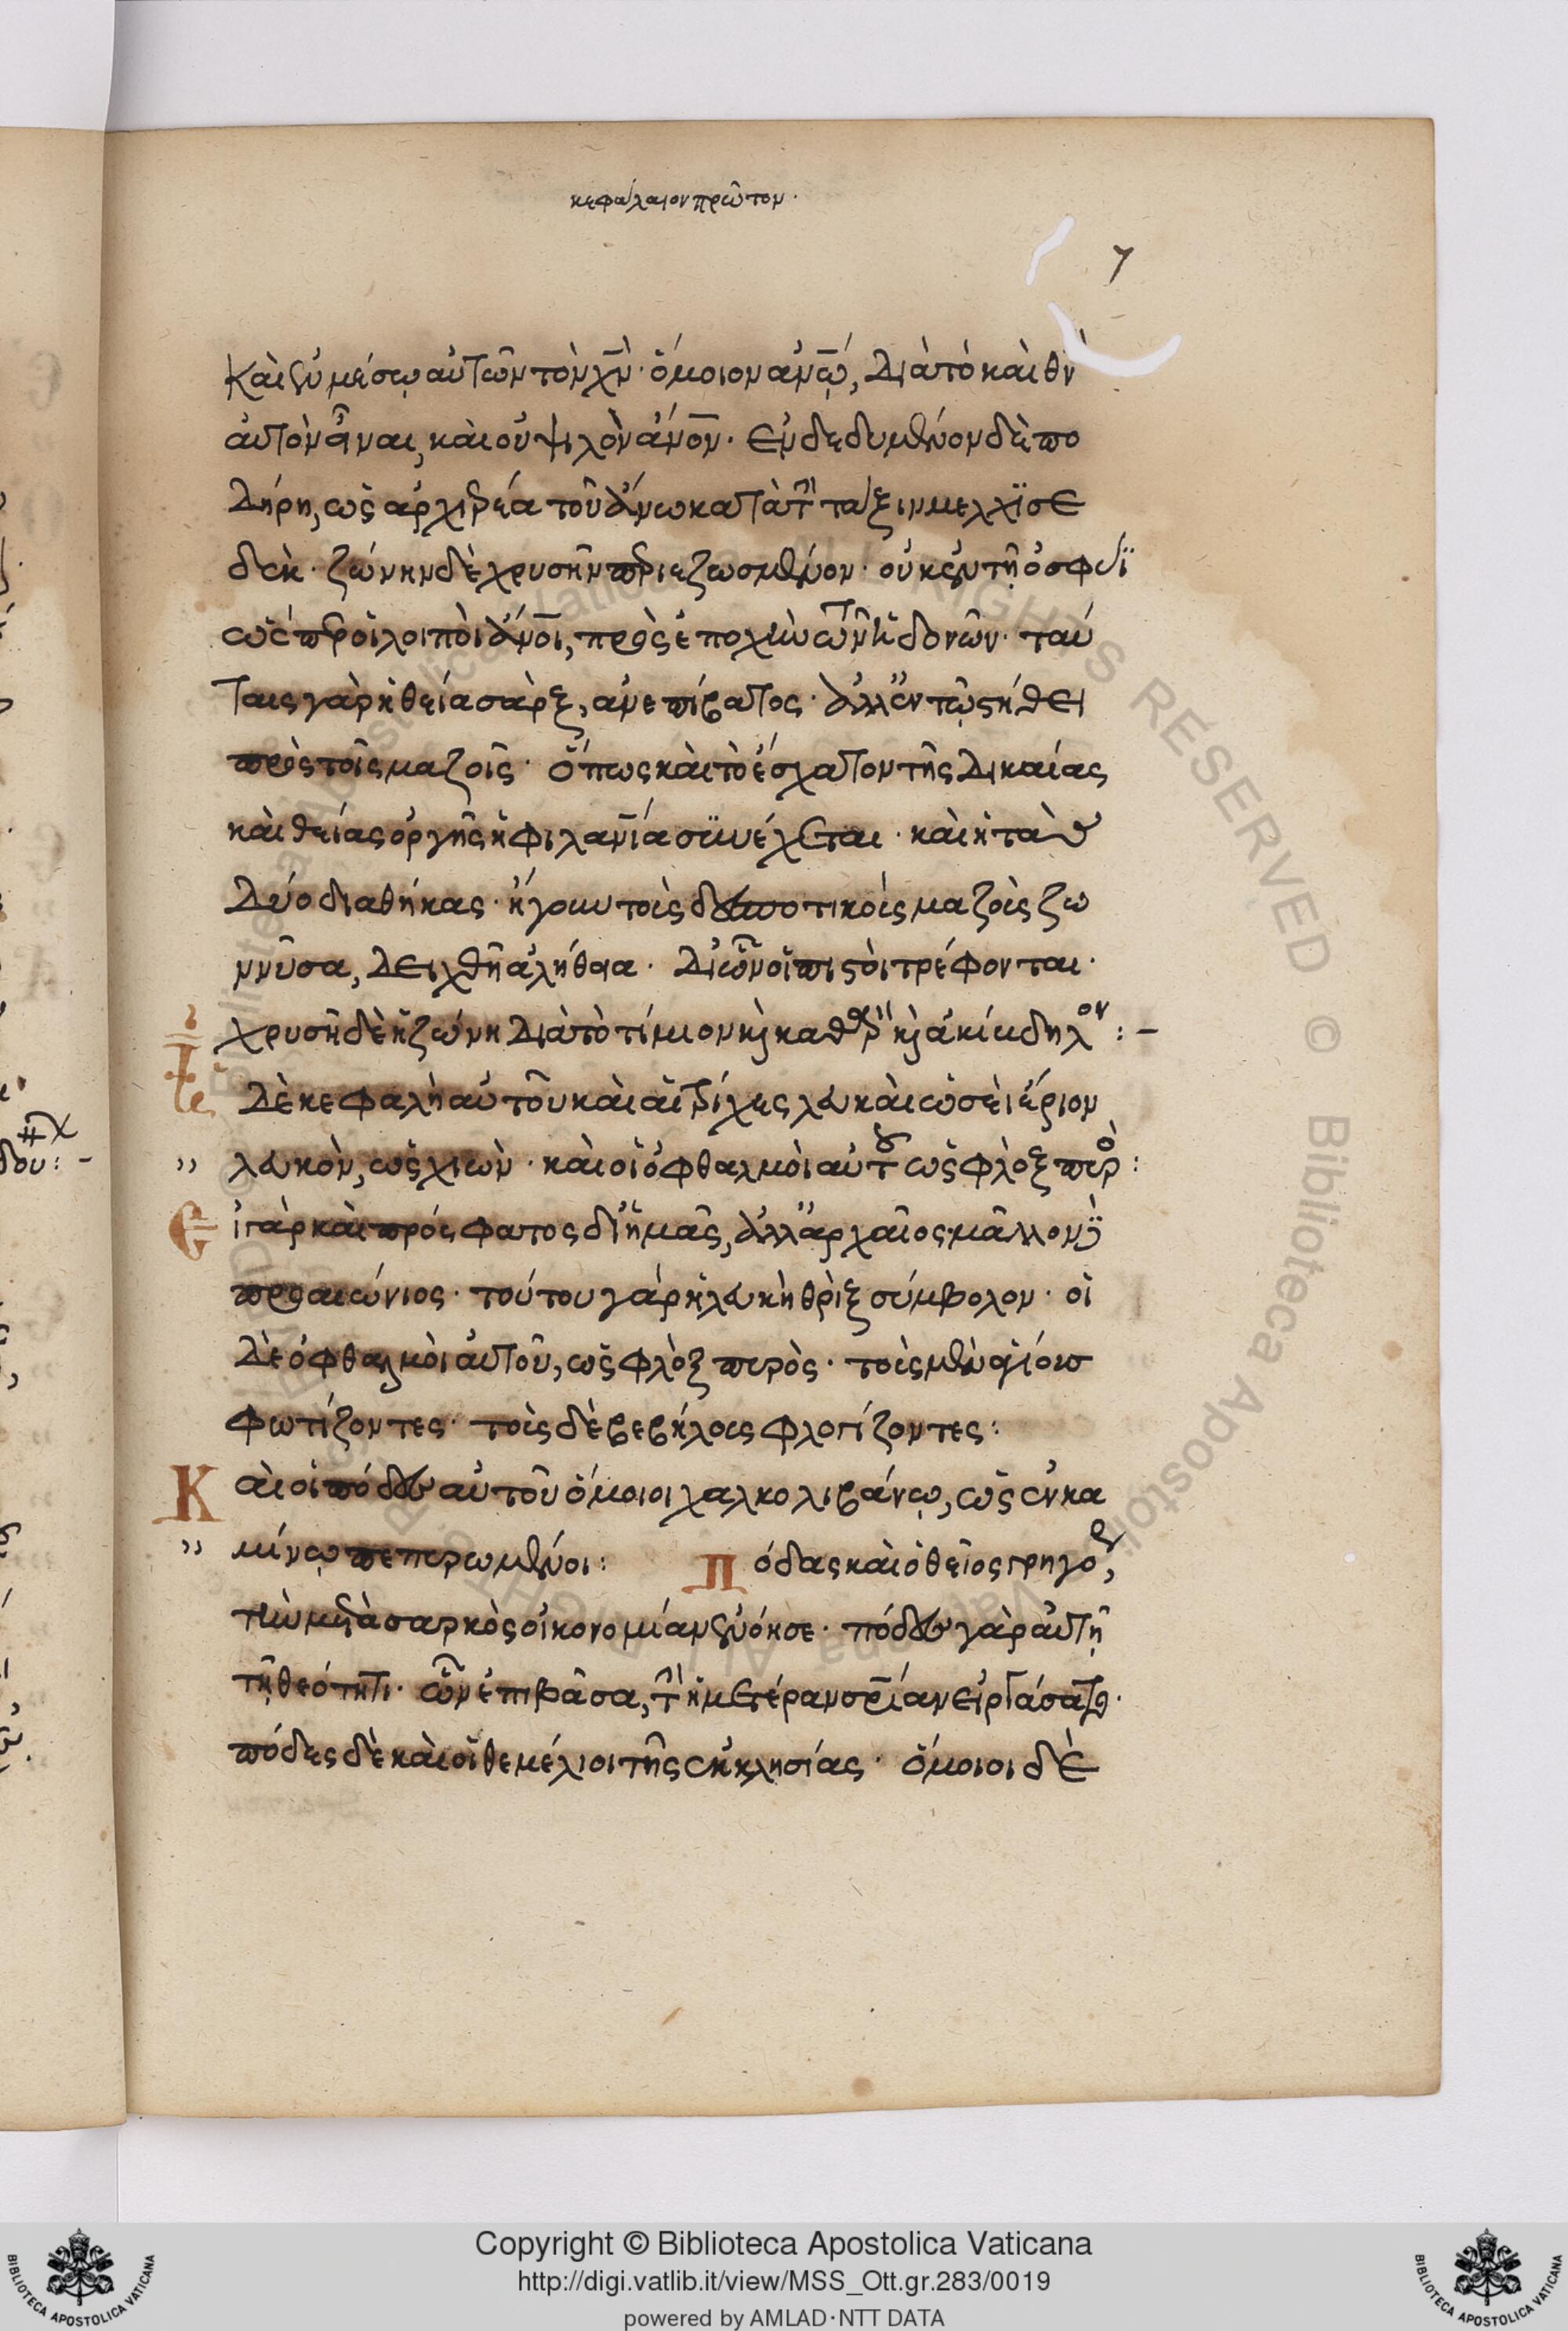 κεφάλαιον πρῶτον·
7
Καὶ ἐν μέσῳ αὐτῶν τὸν χν̅· ὅμοιον ἀνω̅, διὰ τὸ καὶ θν̅
αὐτὸν εἶναι, καὶ οὐ ψιλὸν ἀνο̅ν· Ἐνδεδυμένον δὲ πο
δήρη, ὡς ἀρχιερέα τοῦ ἄνω κατὰ τὴν τάξιν μελχϊσε
δέκ· ζώνην δὲ χρυσῆν περιεζωσμένον· οὐκ ἐν τῇ ὀσφύϊ
ὥσπερ οἱ λοιποὶ ἄνο̅ι, πρὸς ἐποχὴν τῶν ἡδονῶν· ταύ
ταις γὰρ ἡ θεία σὰρξ, ἀνεπίβατος· ἀλλ' ἐν τῷ στήθει
πρὸς τοῖς μαζοῖς· ὅπως καὶ τὸ ἔσχατον τῆς δικαίας
καὶ θείας ὀργῆς ἡ φιλανία συνέχεται· καὶ ἡ τὰς
δύο διαθήκας· ἤγουν τοῖς δεσποτικοῖς μαζοῖς ζω
ννῦσα, δειχθῇ ἀλήθεια· δι' ὧν οἱ πιστοὶ τρέφονται·
χρυσῆ δὲ ἡ ζώνη διὰ τὸ τίμιον καὶ καθαρὸν καὶ ἀκίβδηλον :–
ἡ
ιε
Δὲ κεφαλὴ αὐτοῦ καὶ αἱ τρίχες λευκαὶ ὡσεὶ ἔριον
" λευκὸν, ὡς χιὼν· καὶ οἱ ὀφθαλμοὶ αὐτοῦ ὡς φλὸξ πυρὸ :
Εἰ γὰρ καὶ πρόσφατος δι' ἡμᾶς, ἀλλ' ἀρχαῖος μᾶλλον δὲ
προαιώνιος· τούτου γὰρ ἡ λευκὴ θρὶξ σύμβολον· οἱ
δὲ ὀφθαλμοὶ αὐτοῦ, ὡς φλὸξ πυρὸς· τοῖς μὲν ἁγίοις
φωτίζοντες· τοῖς δὲ βεβήλοις φλογίζοντες :
Καὶ οἱ πόδες αὐτοῦ ὅμοιοι χαλκολιβάνῳ, ὡς ἐν κα
" μίνῳ πεπυρωμένοι : Πόδας καὶ ὁ θεῖος γρηγό,
τὴν μετὰ σαρκὸς οἰκονομίαν ἐνόησε· πόδες γὰρ αὕτη
τῇ θεότητι· ὧν ἐπιβᾶσα, τὴν ἡμετέραν σρ̅ίαν εἰργάσατο·
πόδες δὲ καὶ οἱ θεμέλιοι τῆς ἐκκλησίας· ὅμοιοι δὲ
Copyright © Biblioteca Apostolica Vaticana
http://digi.vatlib.it/view/MSS_Ott.gr.283/0019
powered by AMLAD·NTT DATA